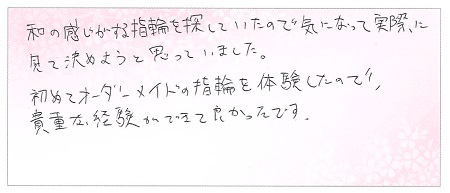 和の感じがする指輪を探していたので気になって実際に
見て決めようと思っていました。
初めてオーダーメイドの指輪を体験したので、
貴重な経験ができて良かったです.